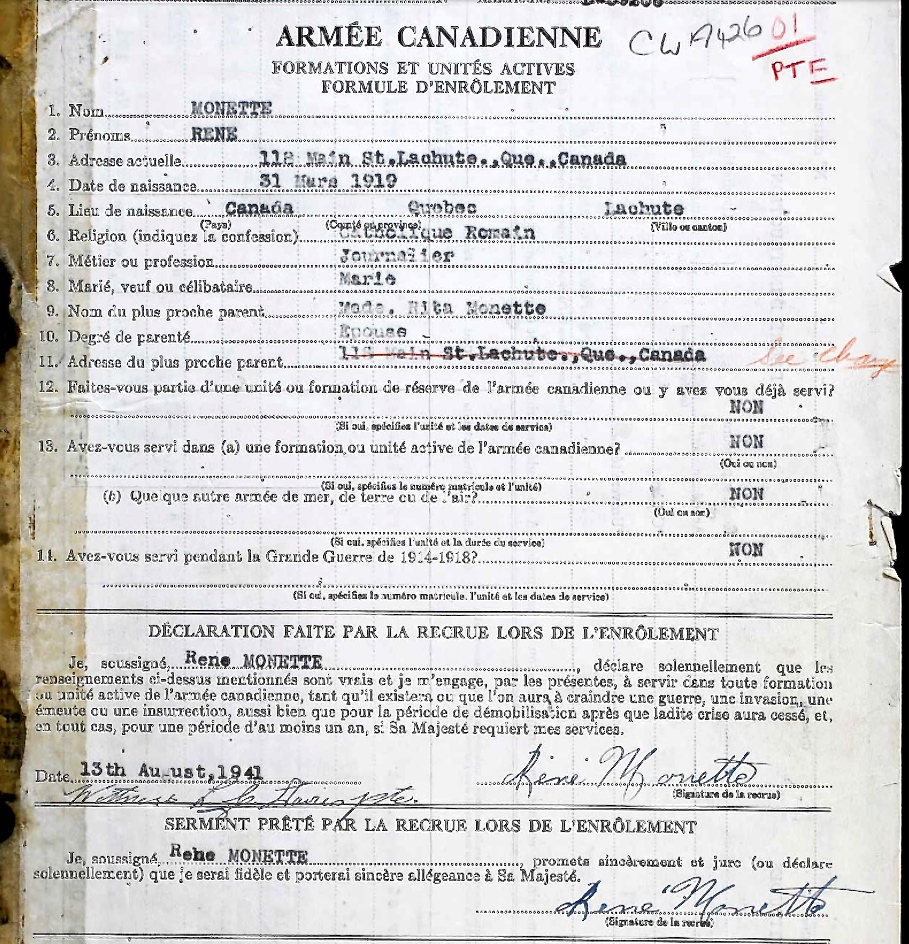 ARMÉE CANADIENNE
CWA426 01
PTE
FORMATIONS ET UNITÉS ACTIVES
FORMULE D'ENRÔLEMENT
1. Nom MONETTE
2. Prénoms RENE
3. Adresse actuelle 118 Main St.Lachute.,Que.,Canada
4. Date de naissance 31 Mars 1919
5. Lieu de naissance Canada Quebec Lachute
(Pays) (Comté ou province) (Ville ou canton)
6. Religion (indiquez la confession) Catholique Romain
7. Métier ou profession Journalier
8. Marié, veuf ou célibataire Marie
9. Nom du plus proche parent Made. Rita Monette
10. Degré de parenté Epouse
11. Adresse du plus proche parent 118 Main St.Lachute.,Que.,Canada See
12. Faites-vous partie d'une unité ou formation de réserve de l'armée canadienne ou y avez vous déjà servi?
NON
(Si oui, spécifiez l'unité et les dates de service)
13. Avez-vous servi dans (a) une formation ou unité active de l'armée canadienne? NON
(Oui ou non)
(Si oui, spécifiez le numéro matricule et l'unité)
(b) Que que autre armée de mer, de terre ou de l'air? NON
(Oui ou non)
(Si oui, spécifiez l'unité et la durée du service)
14. Avez-vous servi pendant la Grande Guerre de 1914-1918? NON
(Si oui, spécifiez le numéro matricule, l'unité et les dates de service)
DÉCLARATION FAITE PAR LA RECRUE LORS DE L'ENRÔLEMENT
Je, soussigné, Rene MONETTE, déclare solennellement que les
renseignements ci-dessus mentionnés sont vrais et je m'engage, par les présentes, à servir dans toute formation
ou unité active de l'armée canadienne, tant qu'il existera ou que l'on aura à craindre une guerre, une invasion, une
émeute ou une insurrection, aussi bien que pour la période de démobilisation après que ladite crise aura cessé, et,
en tout cas, pour une période d'au moins un an, si Sa Majesté requiert mes services.
Date 13th Au ust,1941 René Monette
(Signature de la recrue)
Witness
SERMENT PRÊTÉ PAR LA RECRUE LORS DE L'ENRÔLEMENT
Je, soussigné, Rene MONETTE, promets sincèrement et jure (ou déclare
solennellement) que je serai fidèle et porterai sincère allégeance à Sa Majesté.
René Monette
(Signature de la recrue)